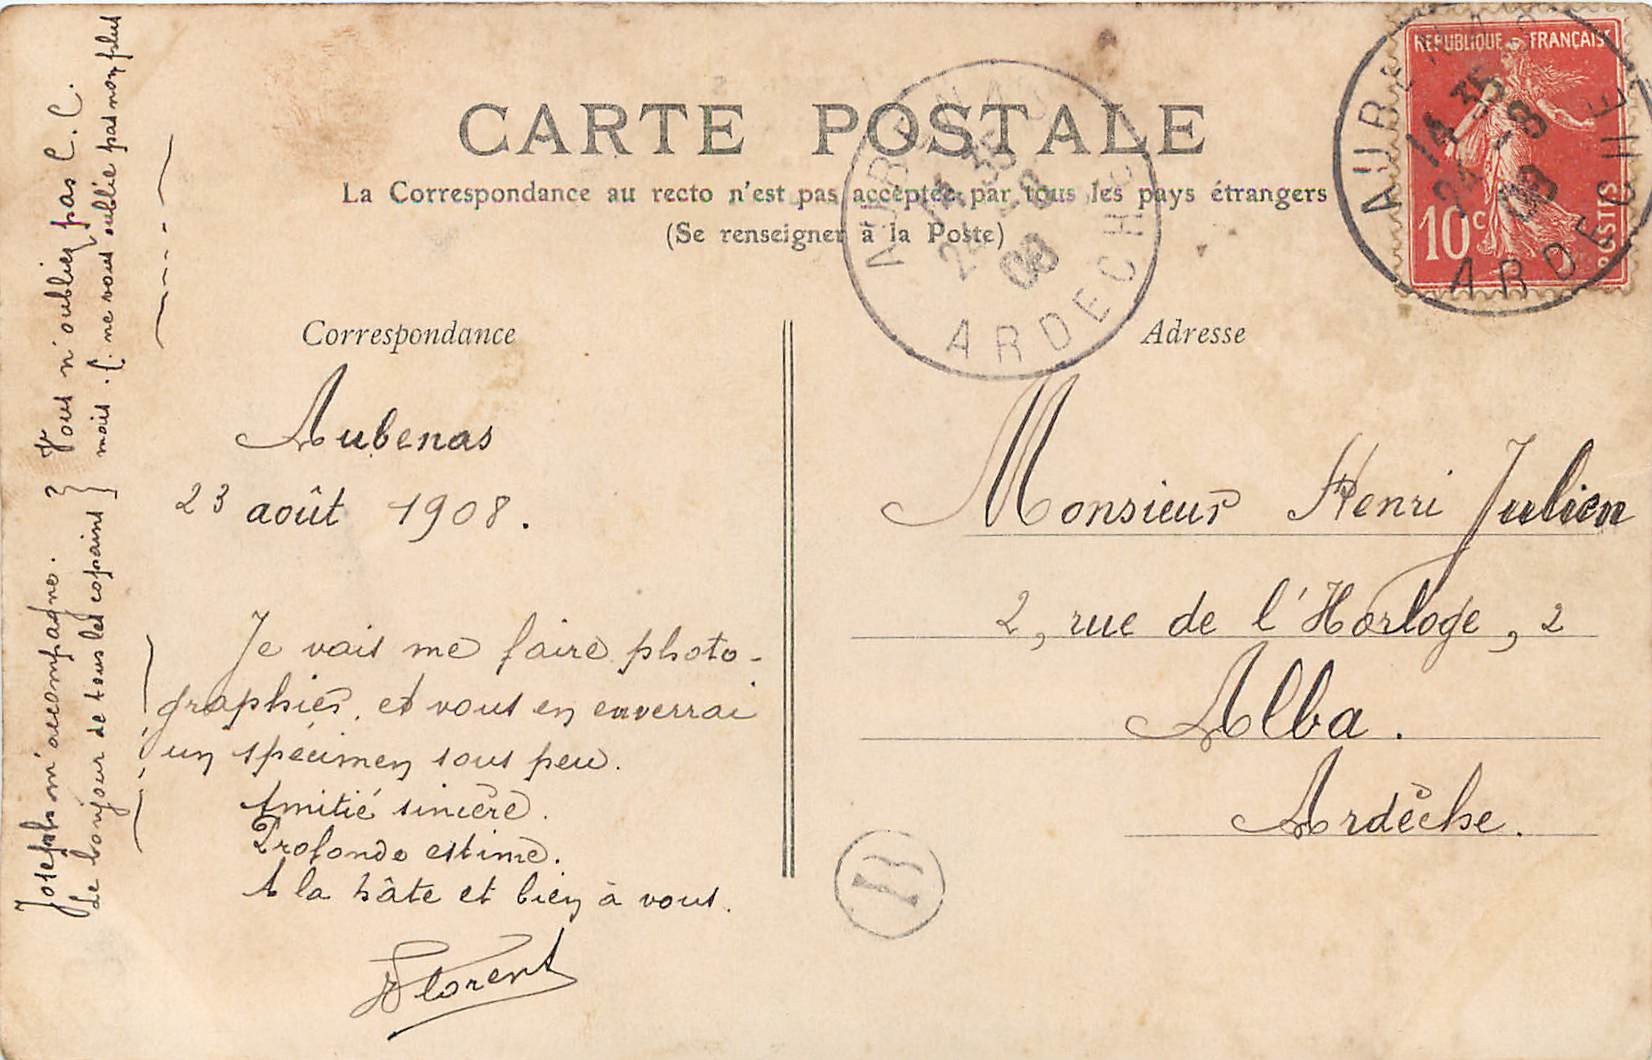 CARTE POSTALE
La Correspondance au recto n'est pas acceptée par tous les pays étrangers
(Se renseigner à la Poste)
REPUBLIQUE FRANÇAISE
10c
POSTES
AUBENAS
14 35
24 -8
08
ARDECHE
AUBENAS
14 35
24 -8
08
ARDECHE
Correspondance
Aubenas
23 août 1908.
Je vais me faire photo-
graphier, et vous en enverrai
un spécimen sous peu.
Amitié sincère.
Profonde estime.
A la hâte et bien à vous.
Florent
Joseph m'accompagne.
Le bonjour de tous les copains
Vous n'oubliez pas C. C.
mais. (ne vous oublie pas non plus
Adresse
Monsieur Henri Julien
2, rue de l'Horloge, 2
Alba.
Ardèche.